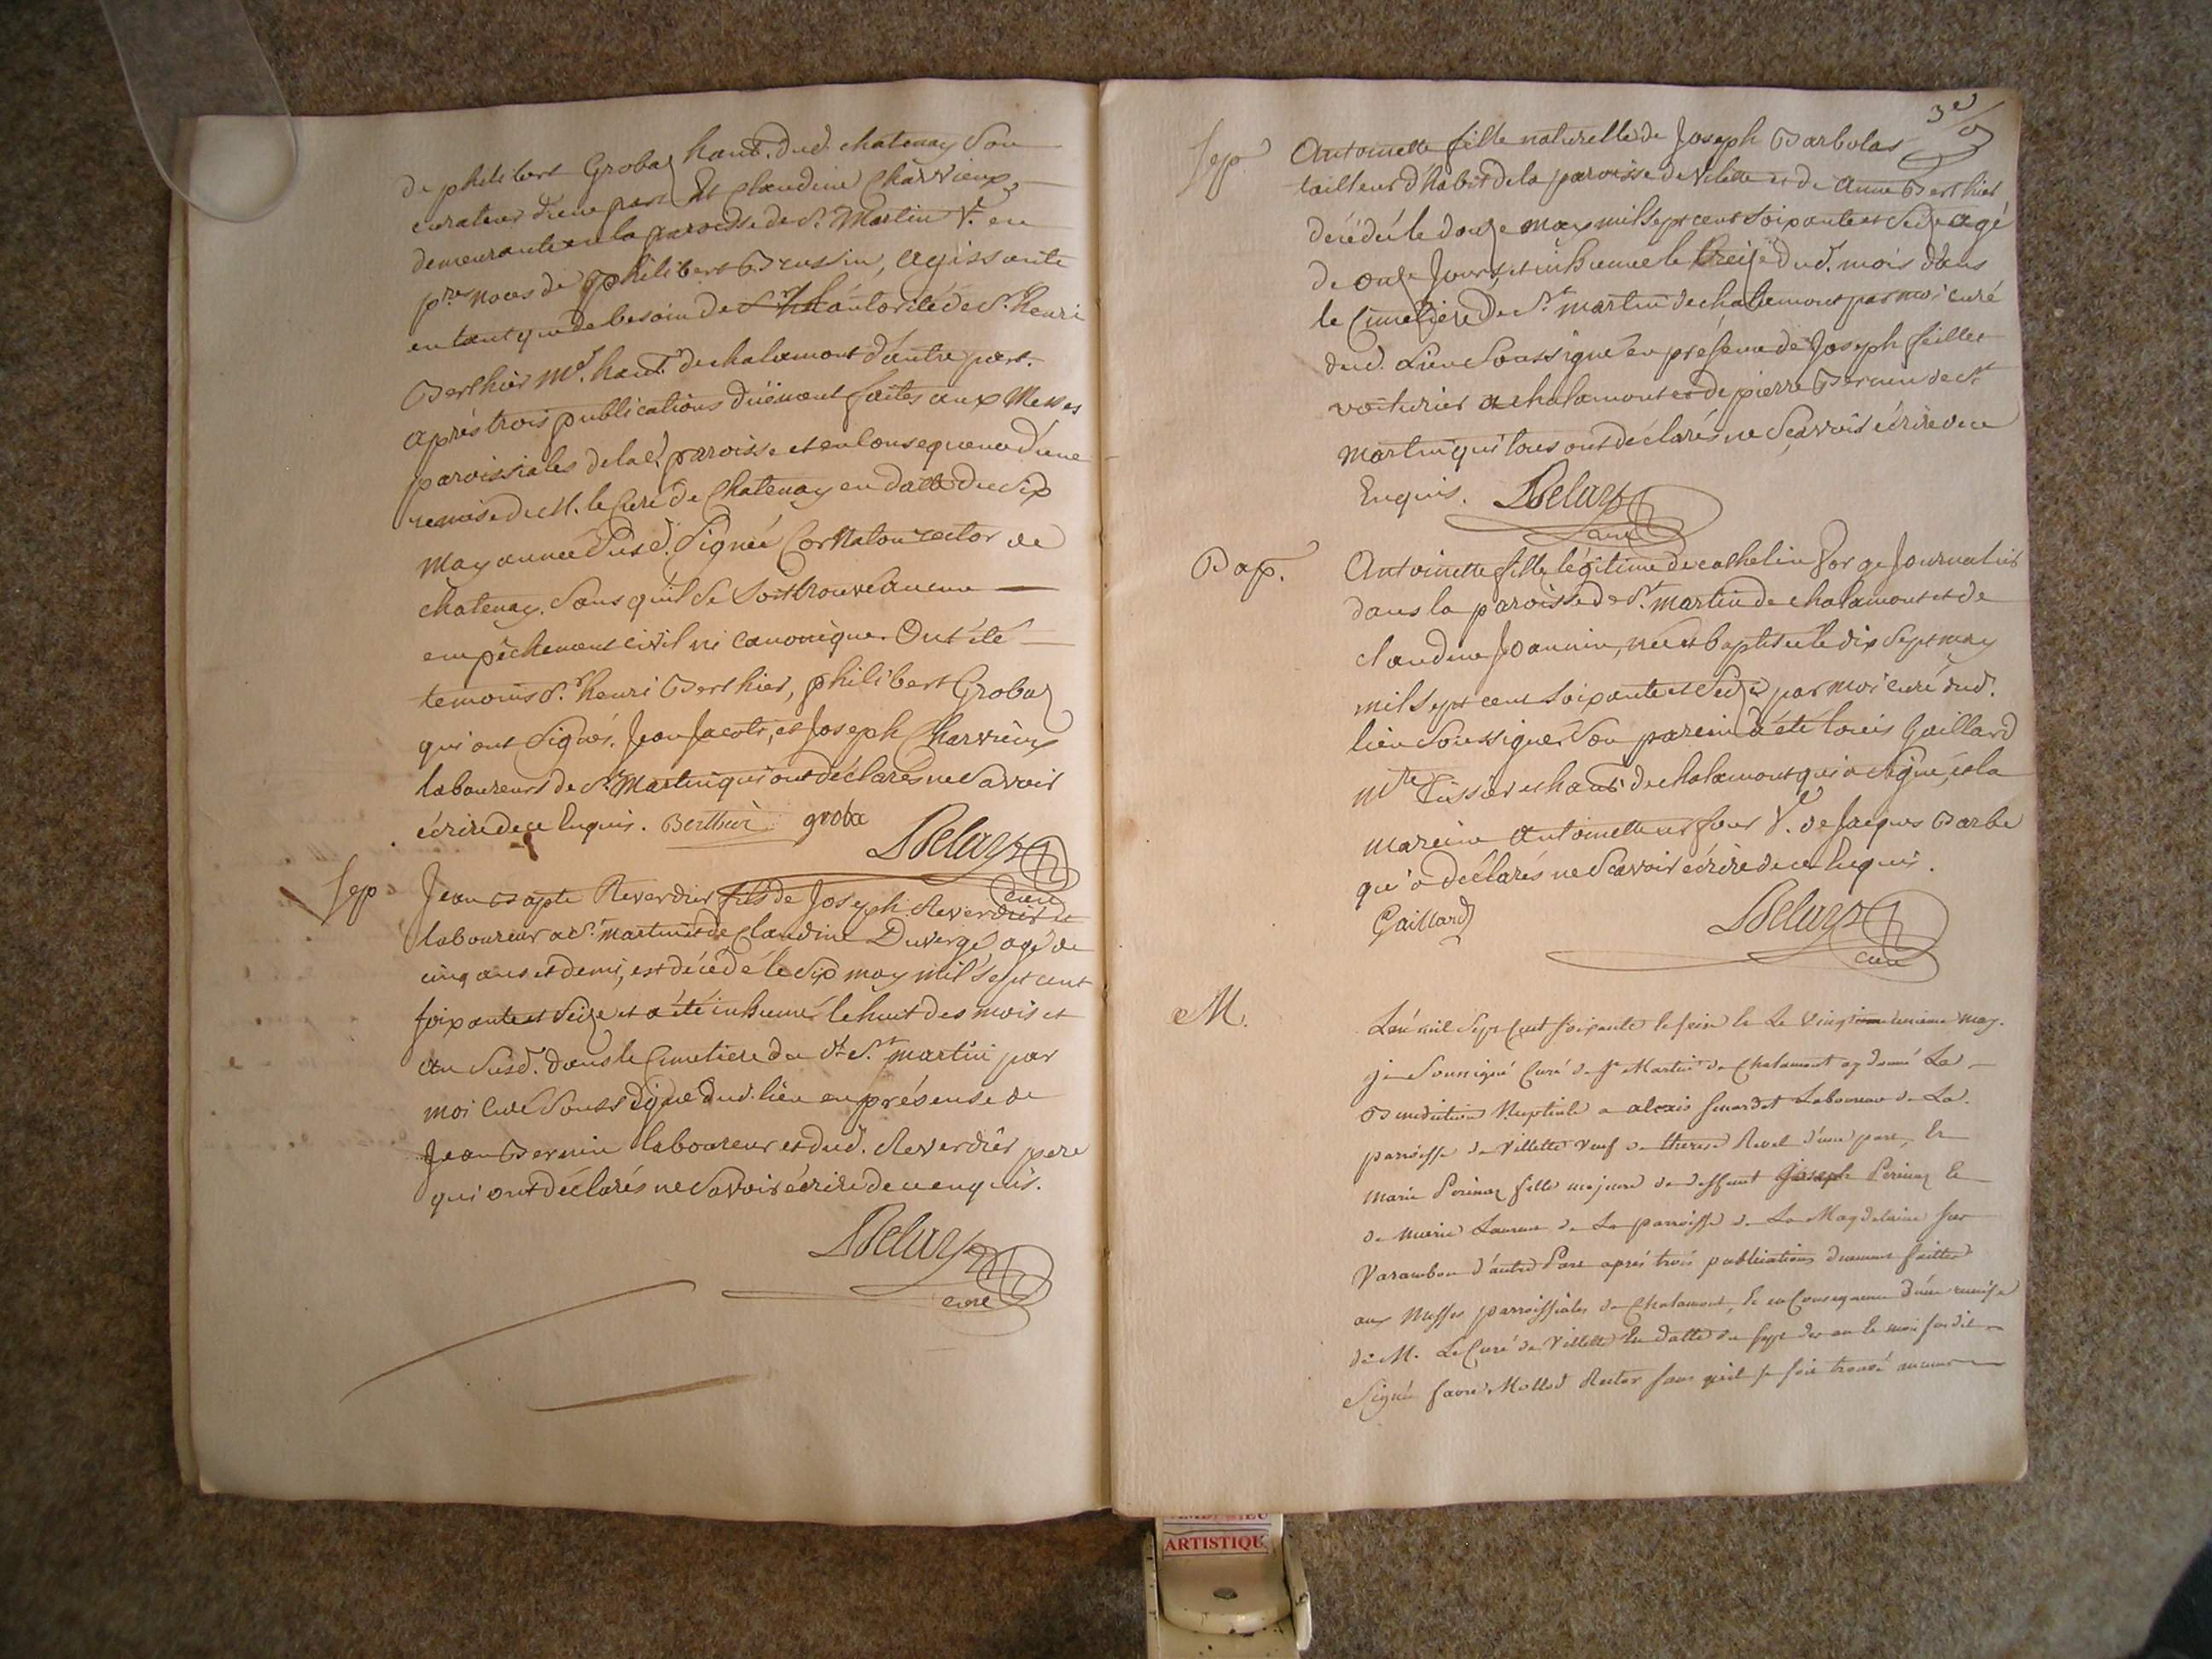 de philibert Grobaz habt. dud. chatenay Son
curateur d'une part Et Claudine Charvieux
demeurante en la paroisse de St. Martin Ve. en
pres. noces de philibert Brussin, agissante
en tant que de besoin de l'autorité de Sr. henri
Berthier md. habt. de chalamont d'autre part.
après trois publications dûement faites aux Messes
paroissiales de lad. paroisse et en Consequence d'une
remise de M. le Curé de Chatenay en datte du Six
may année Susd. Signée Cornaton rector de
chatenay. Sans qu'il Se Soit trouvé aucun
empêchement civil ni canonique. Ont été
temoins Sr. henri Berthier, philibert Grobaz
qui ont Signés. Jean Jacolt, et Joseph Charvieux
laboureurs de St. Martin qui ont déclarés ne Savoir
écrire de ce Enquis. Berthier groba
Delaz
curé
Sep
Jean Bapte Reverdier fils de Joseph Reverdier
laboureur a St. martin et de Claudine Duvergé agé de
cinq ans et demi, est décédé le Six may mil Sept cent
soixante et Seize et a été inhumé le huit des mois et
an Susd. dans le Cimetiere du dt. St. martin par
moi Curé Soussigné dud. lieu en présense de
Jean Bernin laboureur et dud. Reverdier pere
qui ont déclarés ne Savoir écrire de ce enquis.
Delaz
curé
3e
Sep
Antoinette fille naturelle de Joseph Barbolas
tailleur d'habit de la paroisse de Vilette et de Anne Berthier
décédée le douze may mil Sept cent Soixante et Seize agé
de onze Jours, et inhumée le Treize dud. mois dans
le Cimetiere de St. martin de chalamont par moi curé
dud. Lieu Soussigné en présence de Joseph feillet
voiturier a chalamont et de pierre Bernin de St
Martin qui tous ont déclarés ne Sçavoir écrire de ce
Enquis. Delaz
curé
Bap.
Antoinette fille légitime de cathelin forge Journalier
dans la paroisse de St. martin de chalamont et de
claudine Joannin, née et baptisée le dix Sept may
mil Sept cent Soixante et Seize par moi curé dud.
lieu Soussigné. Son parein a été louis Gaillard
mtre Tissier et habt. de chalamont qui a Signé, et la
mareine Antoinette Ve. de Jacques Barbe
qui a déclarés ne Sçavoir écrire de ce Enquis.
Gaillard Delaz
curé
M.
L'an mil Sept Cent Soixante le seize le Le vingt unieme may.
je Soussigné Curé de St Martin de Chalamont ay donné La
Benediction Nuptiale a alexis Laboureur de La
parroisse de Villette veuf de therese Revel d'une part, Et
marie Perinaz fille majeure de deffunt Joseph Perinaz Et
de marie Laurent de La parroisse de La Magdelaine sur
Varambon d'autre Part après trois publications duement faittes
aux Messes parroissiales de Chalamont, Et en Consequence d'une remise
de M. Le Curé de Villette En datte du sept des an Et mois susdit
Signée favre Rector sans qu'il se soit trouvé aucun
ARTISTIQU